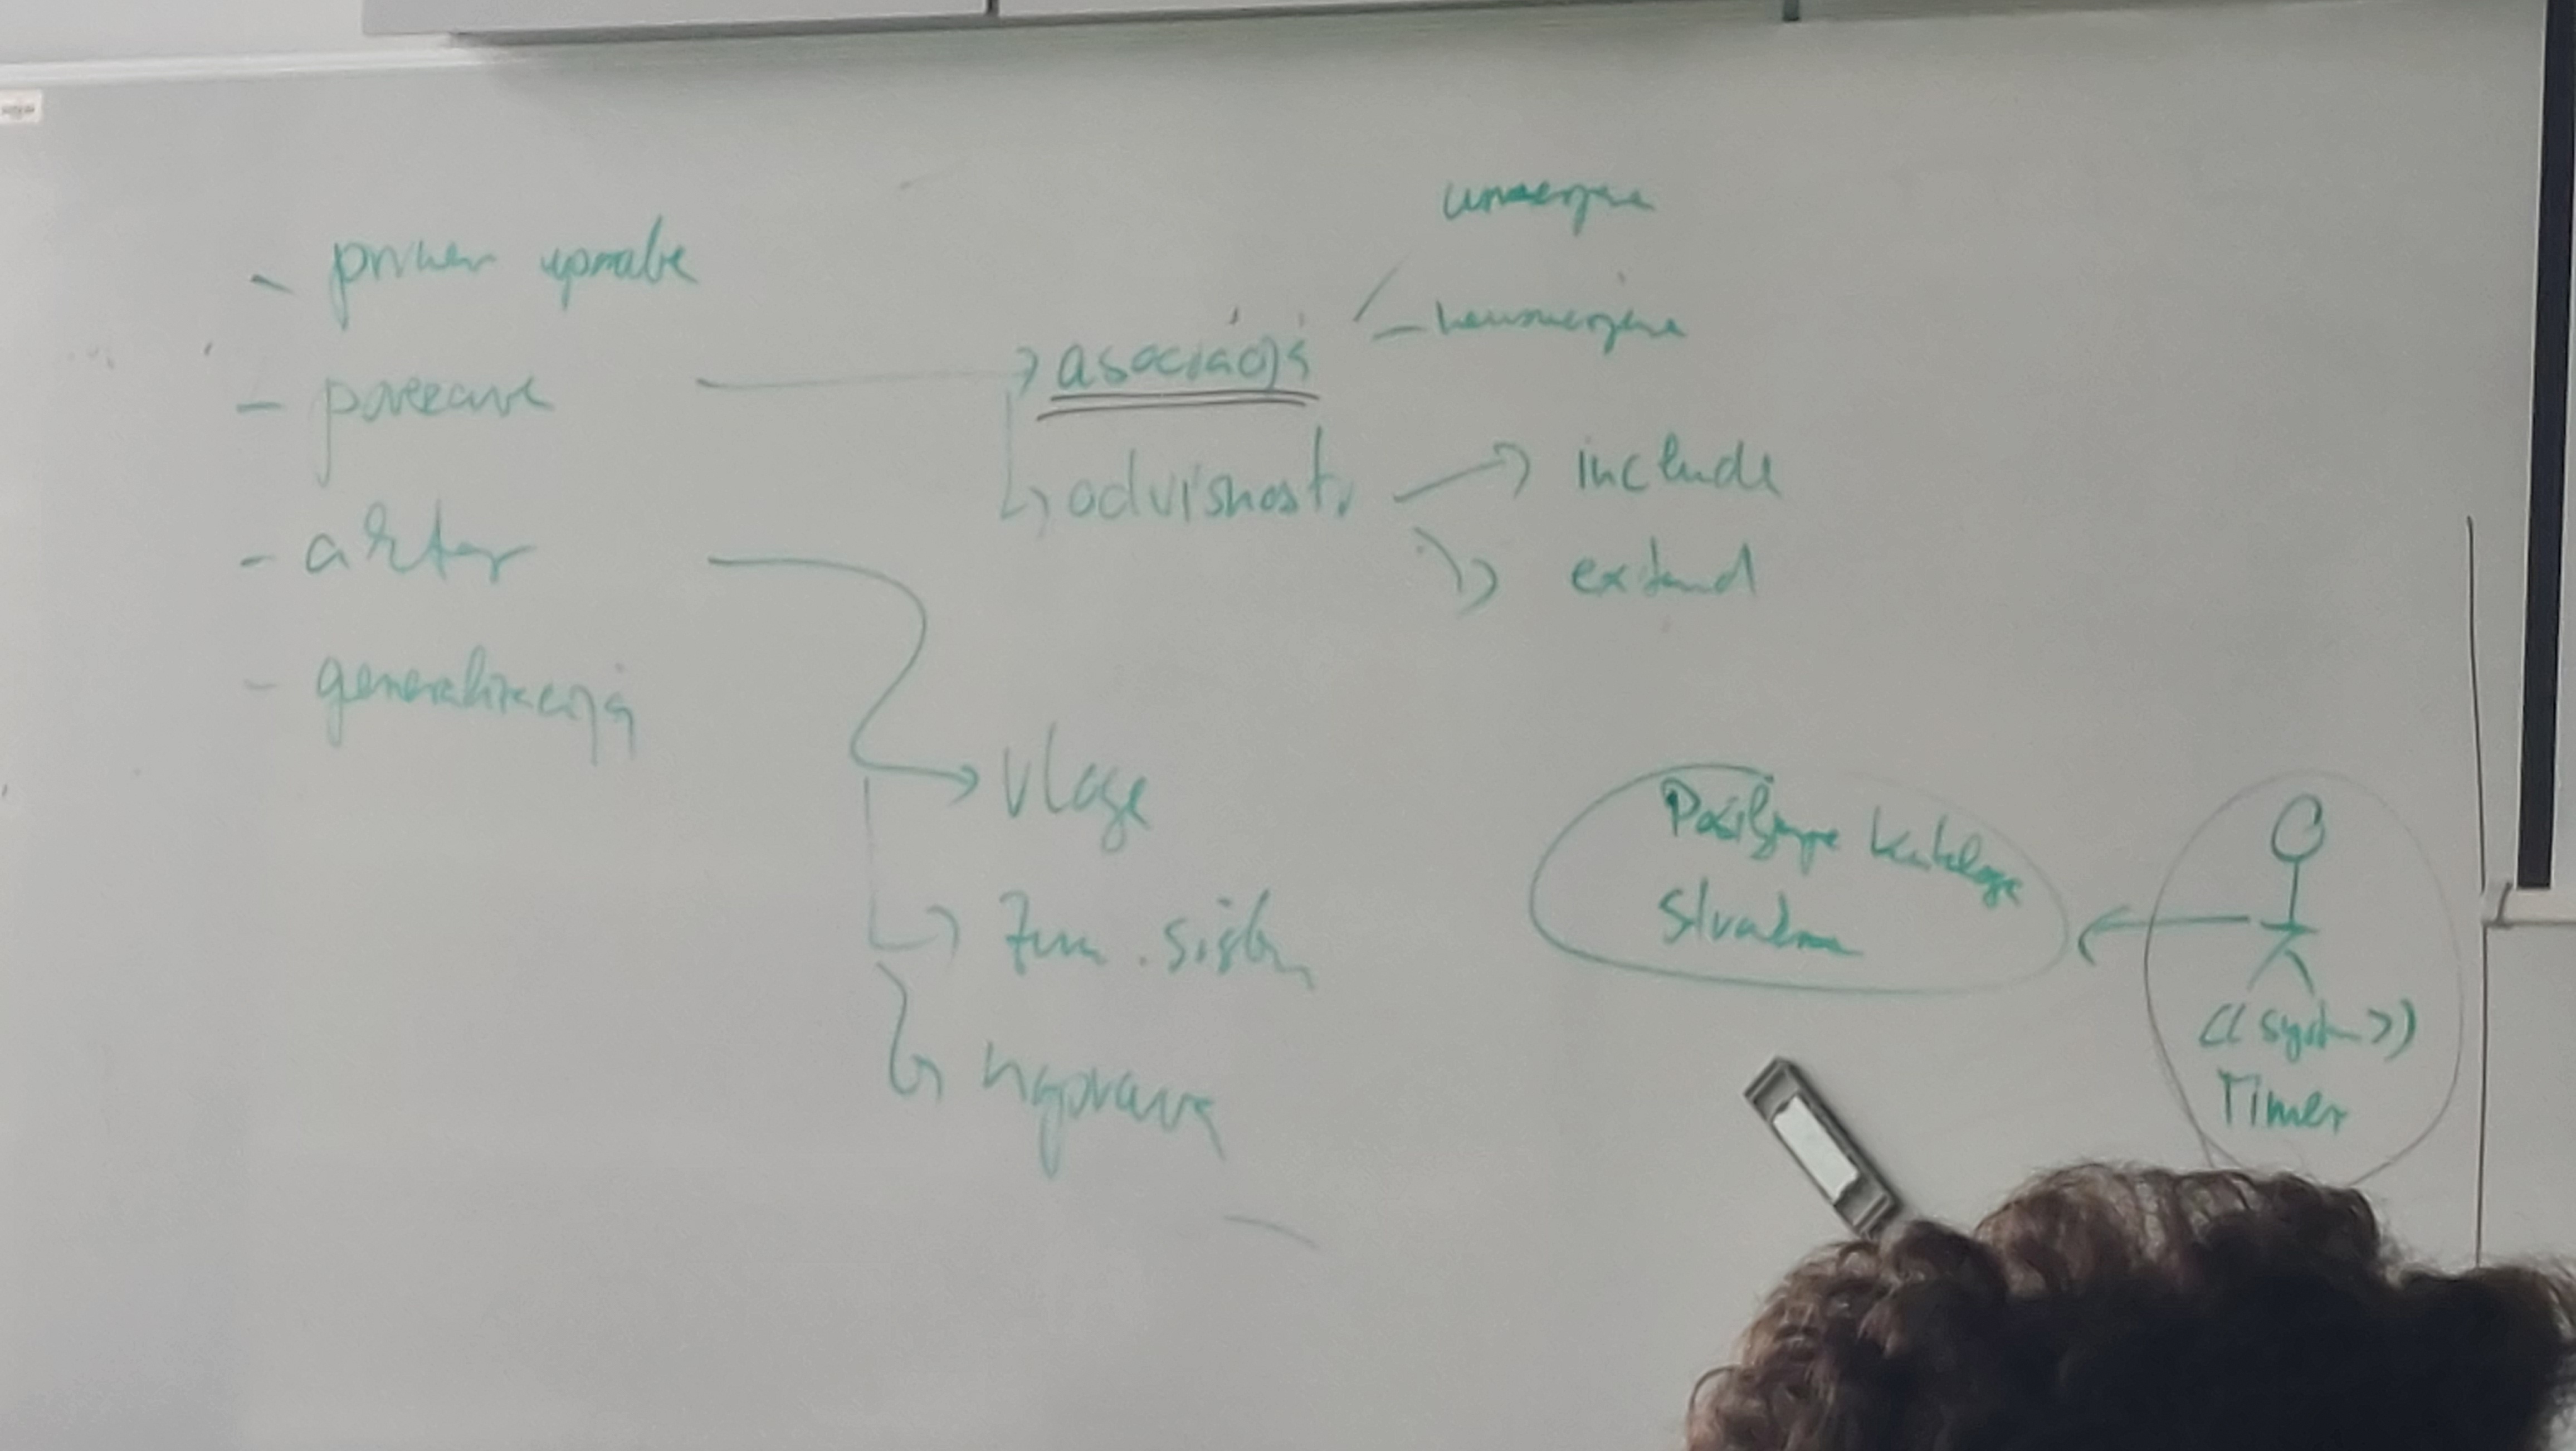 - primer uporabe
- povezave
- aktor
- generalizacija
asociacija
usmerjene
- neusmerjene
odvisnosti
include
extend
vloge
zun. sistem
naprava
Pošiljanje kataloga
<<system>>
Timer